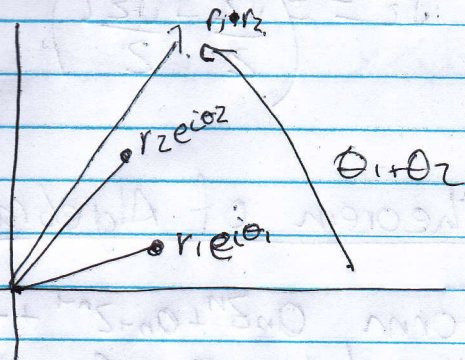 r₁·r₂
r₂e^{iθ₂}
θ₁+θ₂
r₁e^{iθ₁}